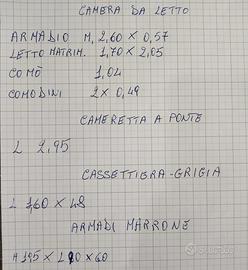 CAMERA DA LETTO
ARMADIO M, 2,60 X 0,57
LETTO MATRIM. 1,70 X 2,05
COMÒ 1,04
COMODINI 2X 0,49
CAMERETTA A PONTE
L 2,95
CASSETTIERA-GRIGIA
L 1,60 X 48
ARMADI MARRONE
H 195 X L 90 X 60